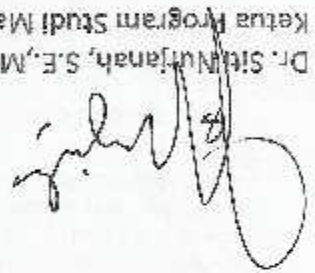 Dr. Siti Nurjanah, S.E., M
Ketua Program Studi Ma